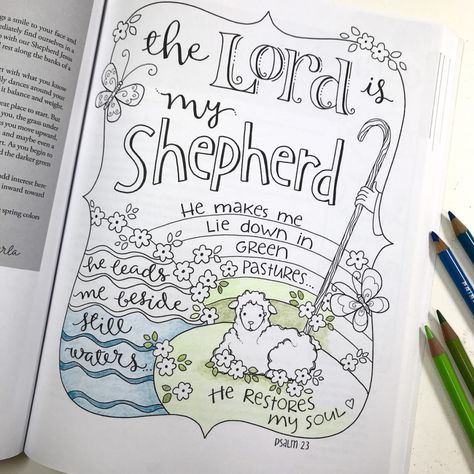 gs a smile to your face and
mediately find ourselves in a
p with our Shepherd Jesus
rest along the banks of a
et with what you know
ly dances around your
it balance and weight.
reat place to start. But
you, the grass under
s you move upward,
and maybe even a
t. As you begin to
d the darker green
d interest here
inward toward
spring colors
arla
the Lord is
my
Shepherd
He makes me
Lie down in
Green
Pastures...
he leads
me beside
still
waters...
He Restores
my Soul
Psalm 23